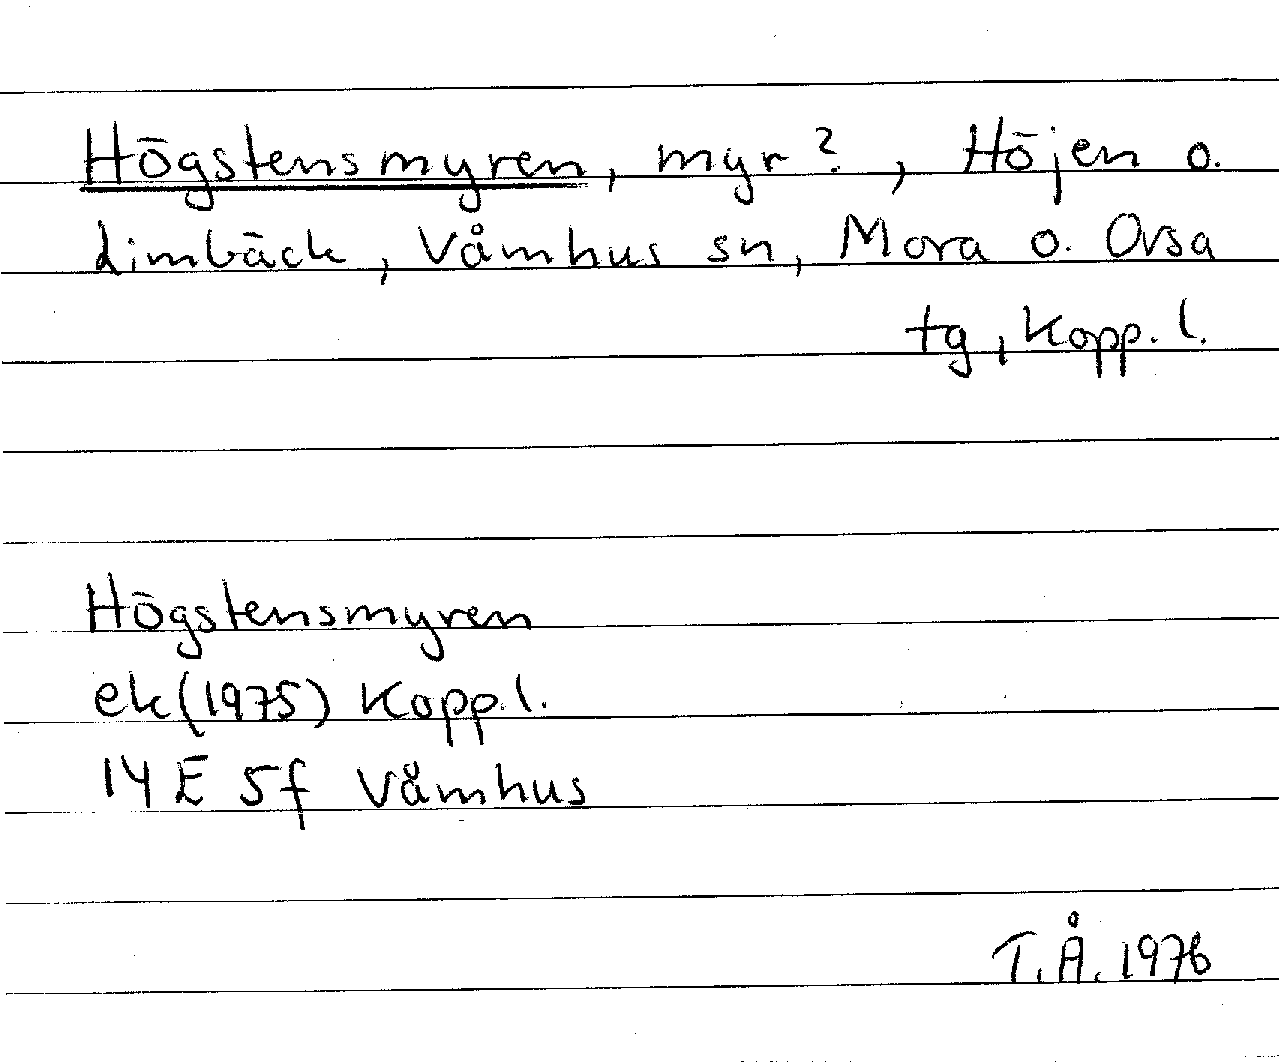 Högstensmyren, myr?, Höjen o.
Limbäck, Våmhus sn, Mora o. Orsa
tg, Kopp. l.
Högstensmyren
ek (1975) Kopp. l.
14 E 5f Våmhus
T.Å. 1976